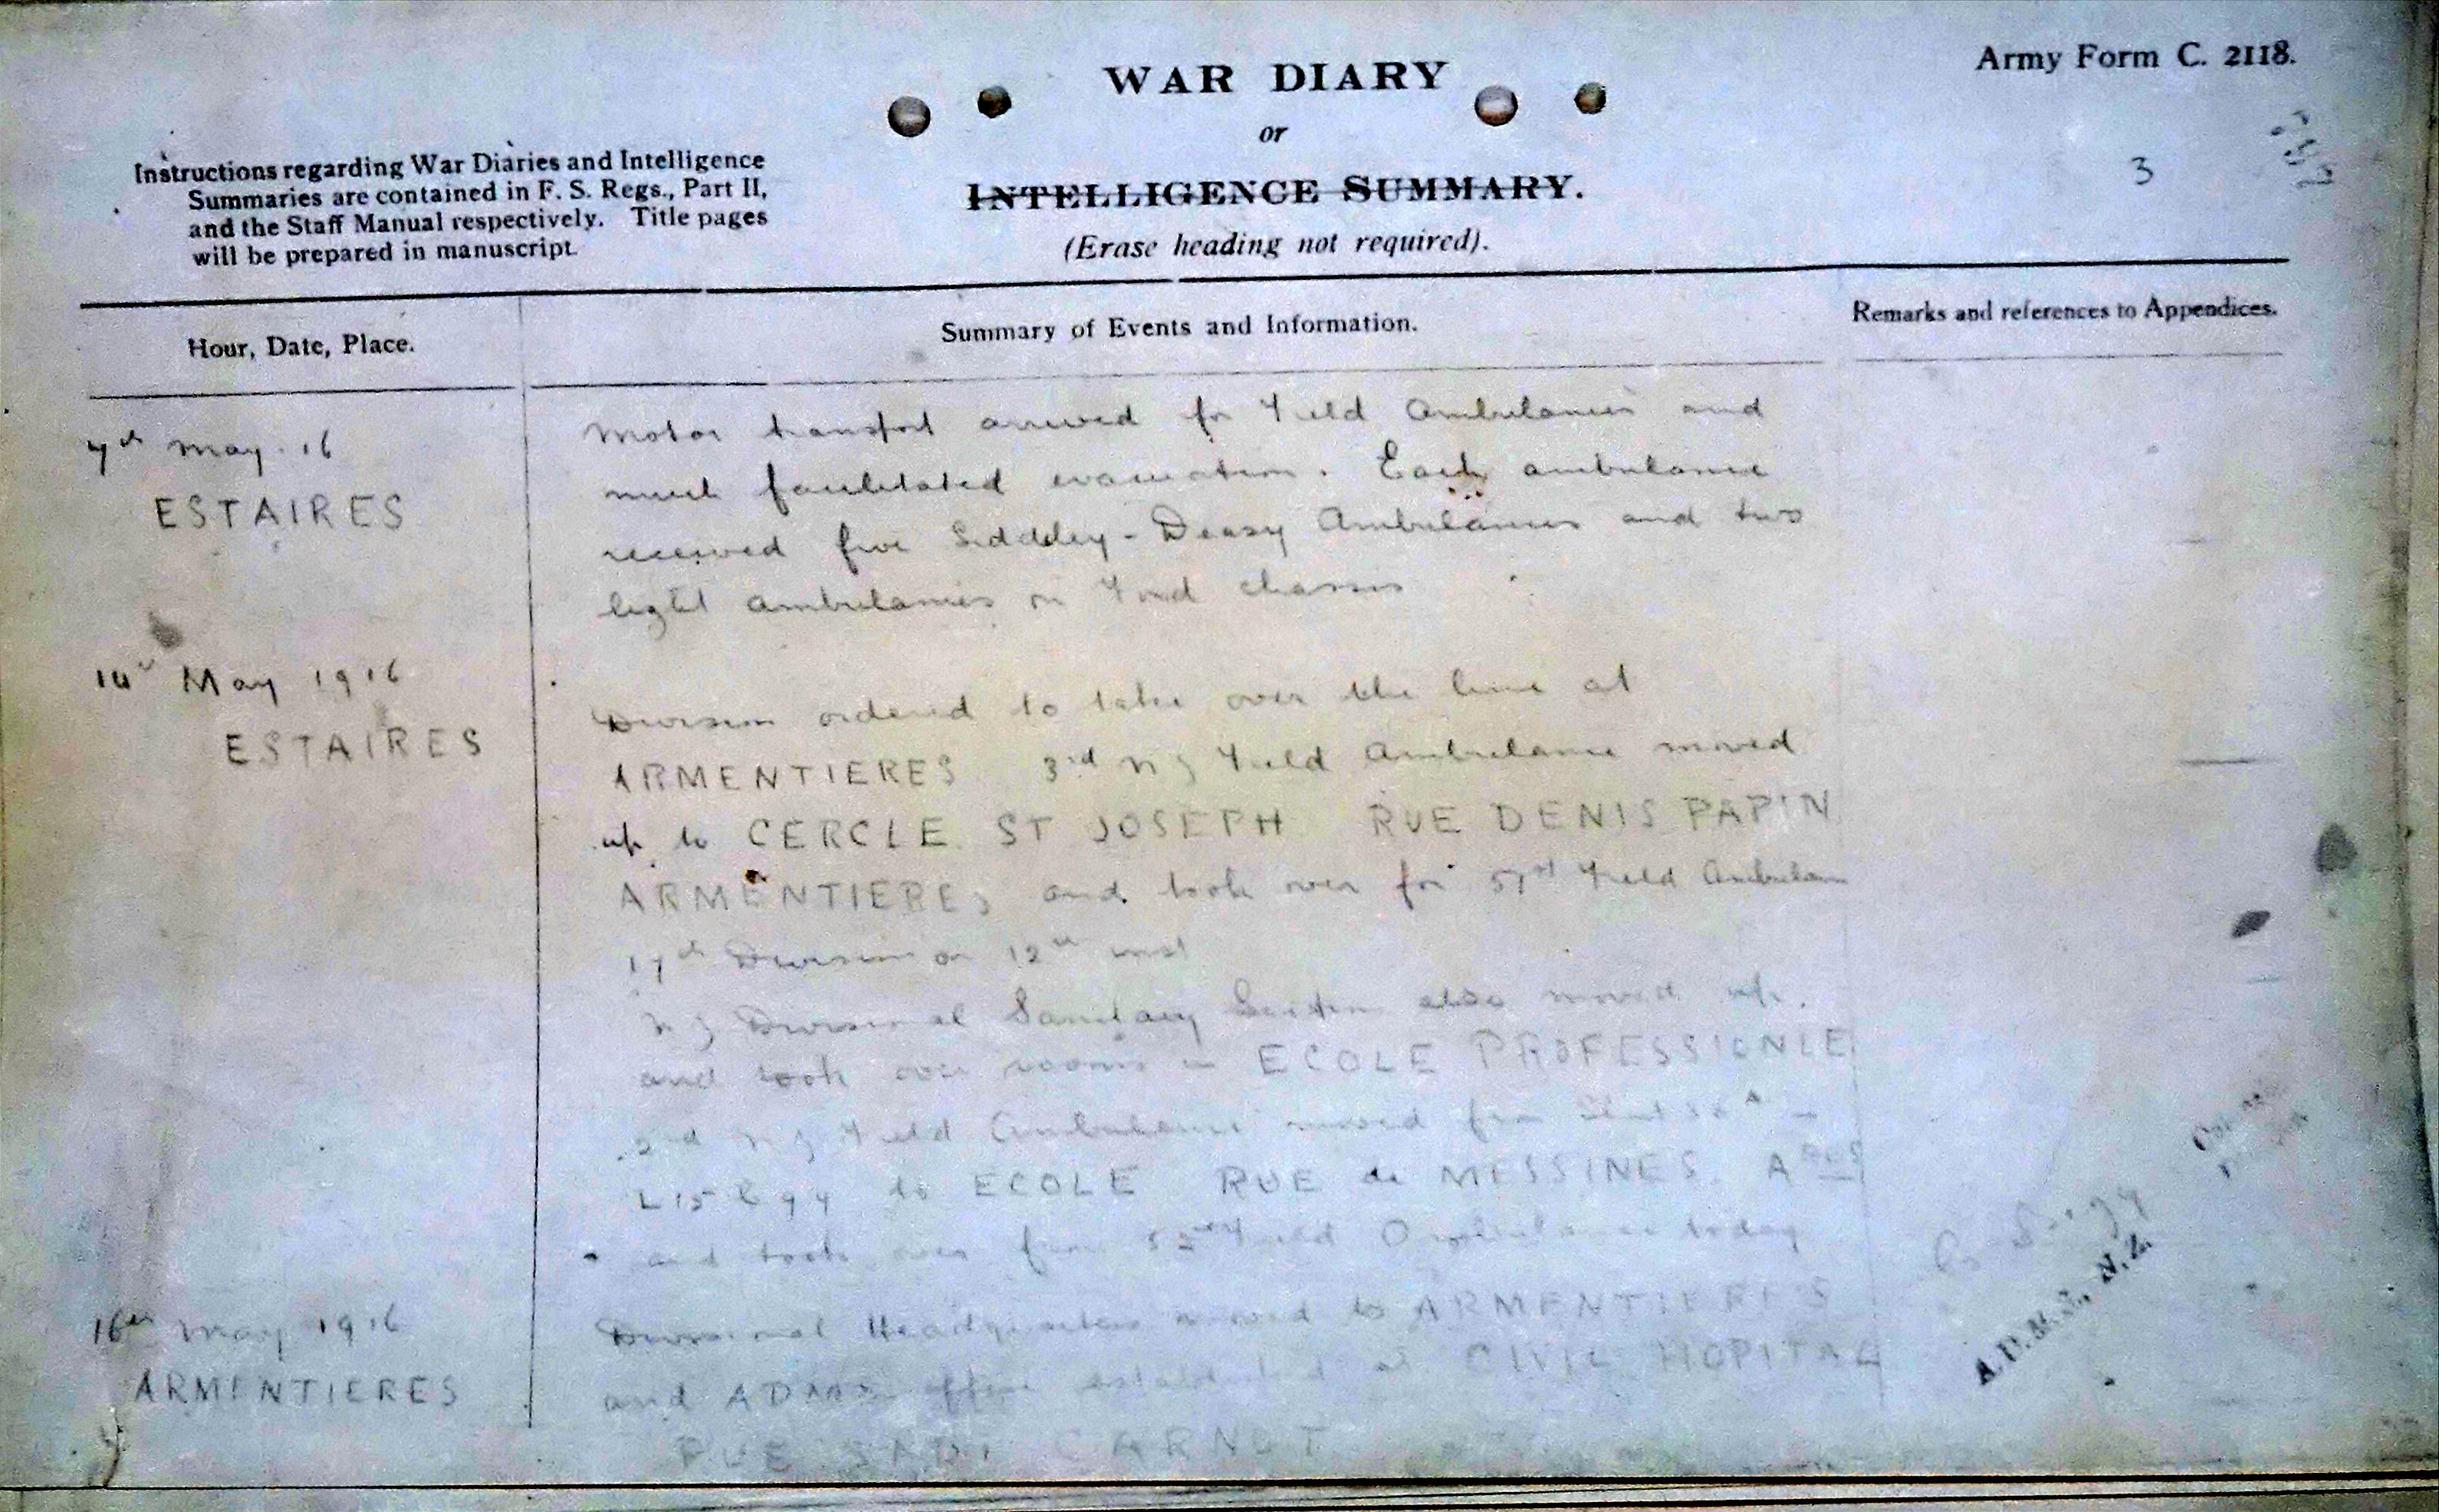 Army Form C. 2118.
WAR DIARY
or
INTELLIGENCE SUMMARY.
(Erase heading not required).
3
Instructions regarding War Diaries and Intelligence
Summaries are contained in F. S. Regs., Part II,
and the Staff Manual respectively. Title pages
will be prepared in manuscript.
Hour, Date, Place.
Summary of Events and Information.
Remarks and references to Appendices.
7th May. 16
ESTAIRES
Motor transport arrived for Field Ambulances and
much facilitated evacuation. Each ambulance
received five Siddeley-Deasy Ambulances and two
light ambulances on Ford chassis
May 1916
ESTAIRES
Division ordered to take over the line at
ARMENTIERES 3rd NZ Field Ambulance moved
up to CERCLE ST JOSEPH RUE DENIS PAPIN
ARMENTIERES and took over for Field Ambulance
17th Division on 12th inst
NZ Divisional Sanitary Section also moved up.
and took over rooms in ECOLE PROFESSIONLE
2nd NZ Field Ambulance moved from
to ECOLE RUE de MESSINES. ARES
and took over from Field Ambulance today
16th May 1916
ARMENTIERES
Divisional Headquarters moved to ARMENTIERES
and ADMS office established at CIVIL HOPITAL
RUE SADI CARNOT
A.D.M.S., N.Z.